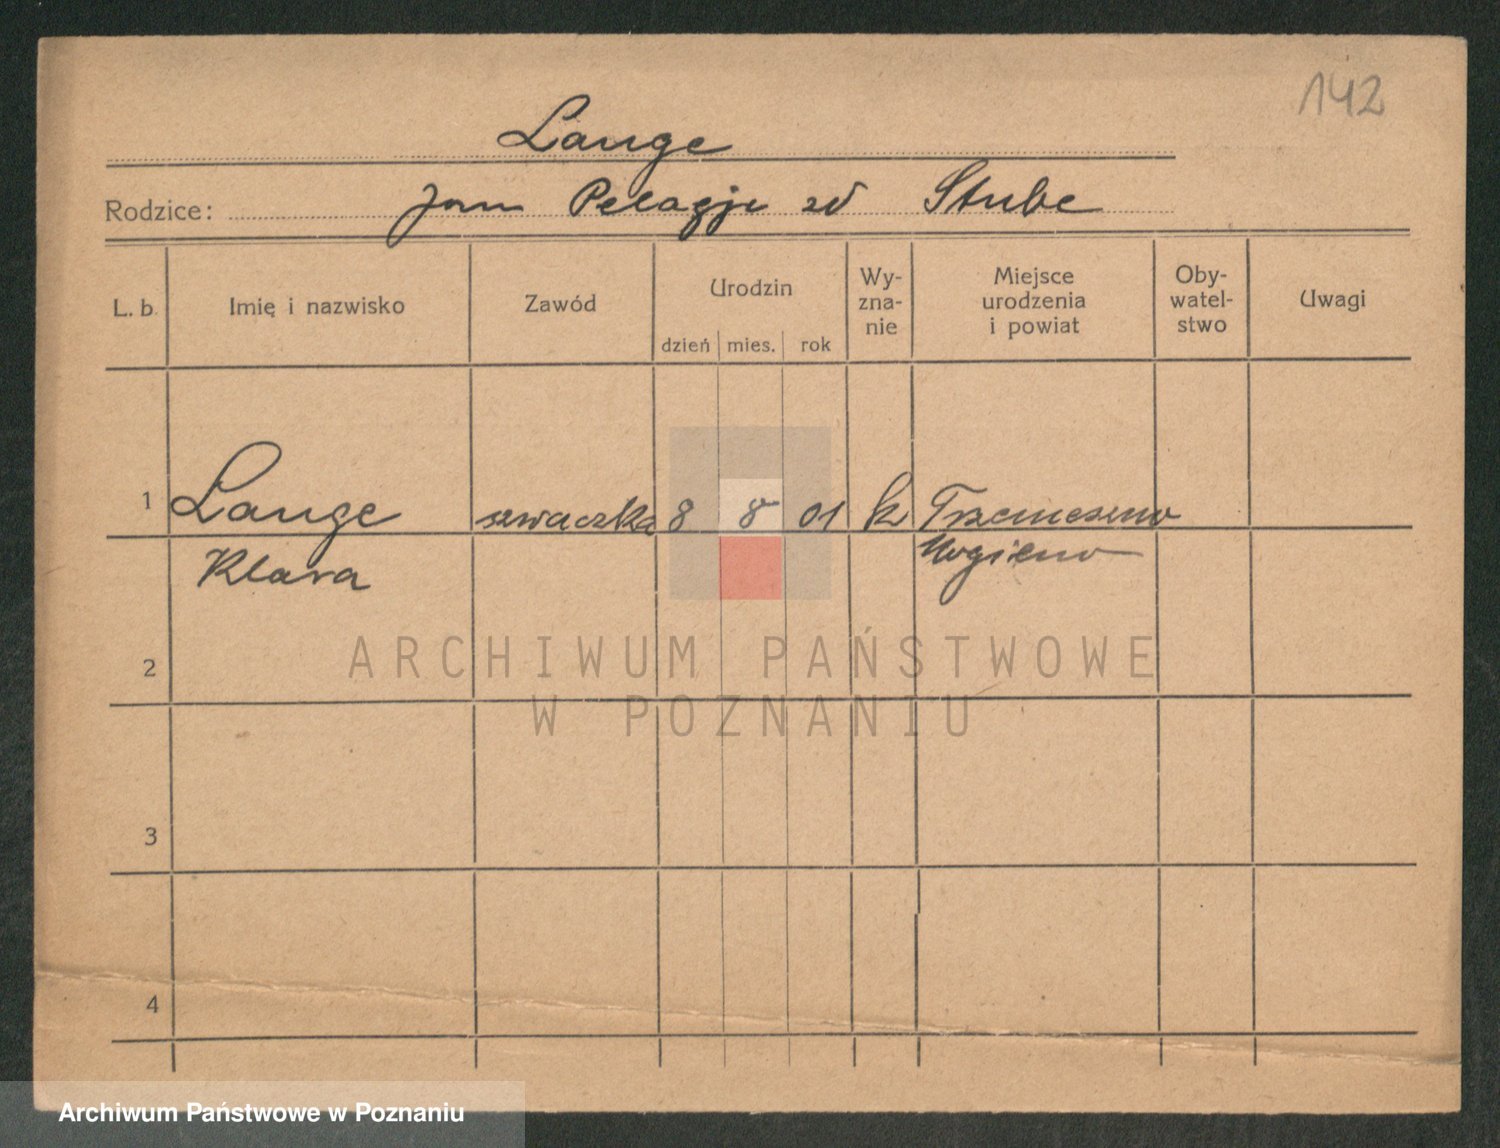 142
Lange
Rodzice: Jan Pelagja zd Stube
L. b. Imię i nazwisko Zawód Urodzin dzień mies. rok Wy-zna-nie Miejsce urodzenia i powiat Oby-watel-stwo Uwagi
1 Lange szwaczka 8 8 01 k Trzemeszno
Klara Mogilno
2
ARCHIWUM PAŃSTWOWE
W POZNANIU
3
4
Archiwum Państwowe w Poznaniu